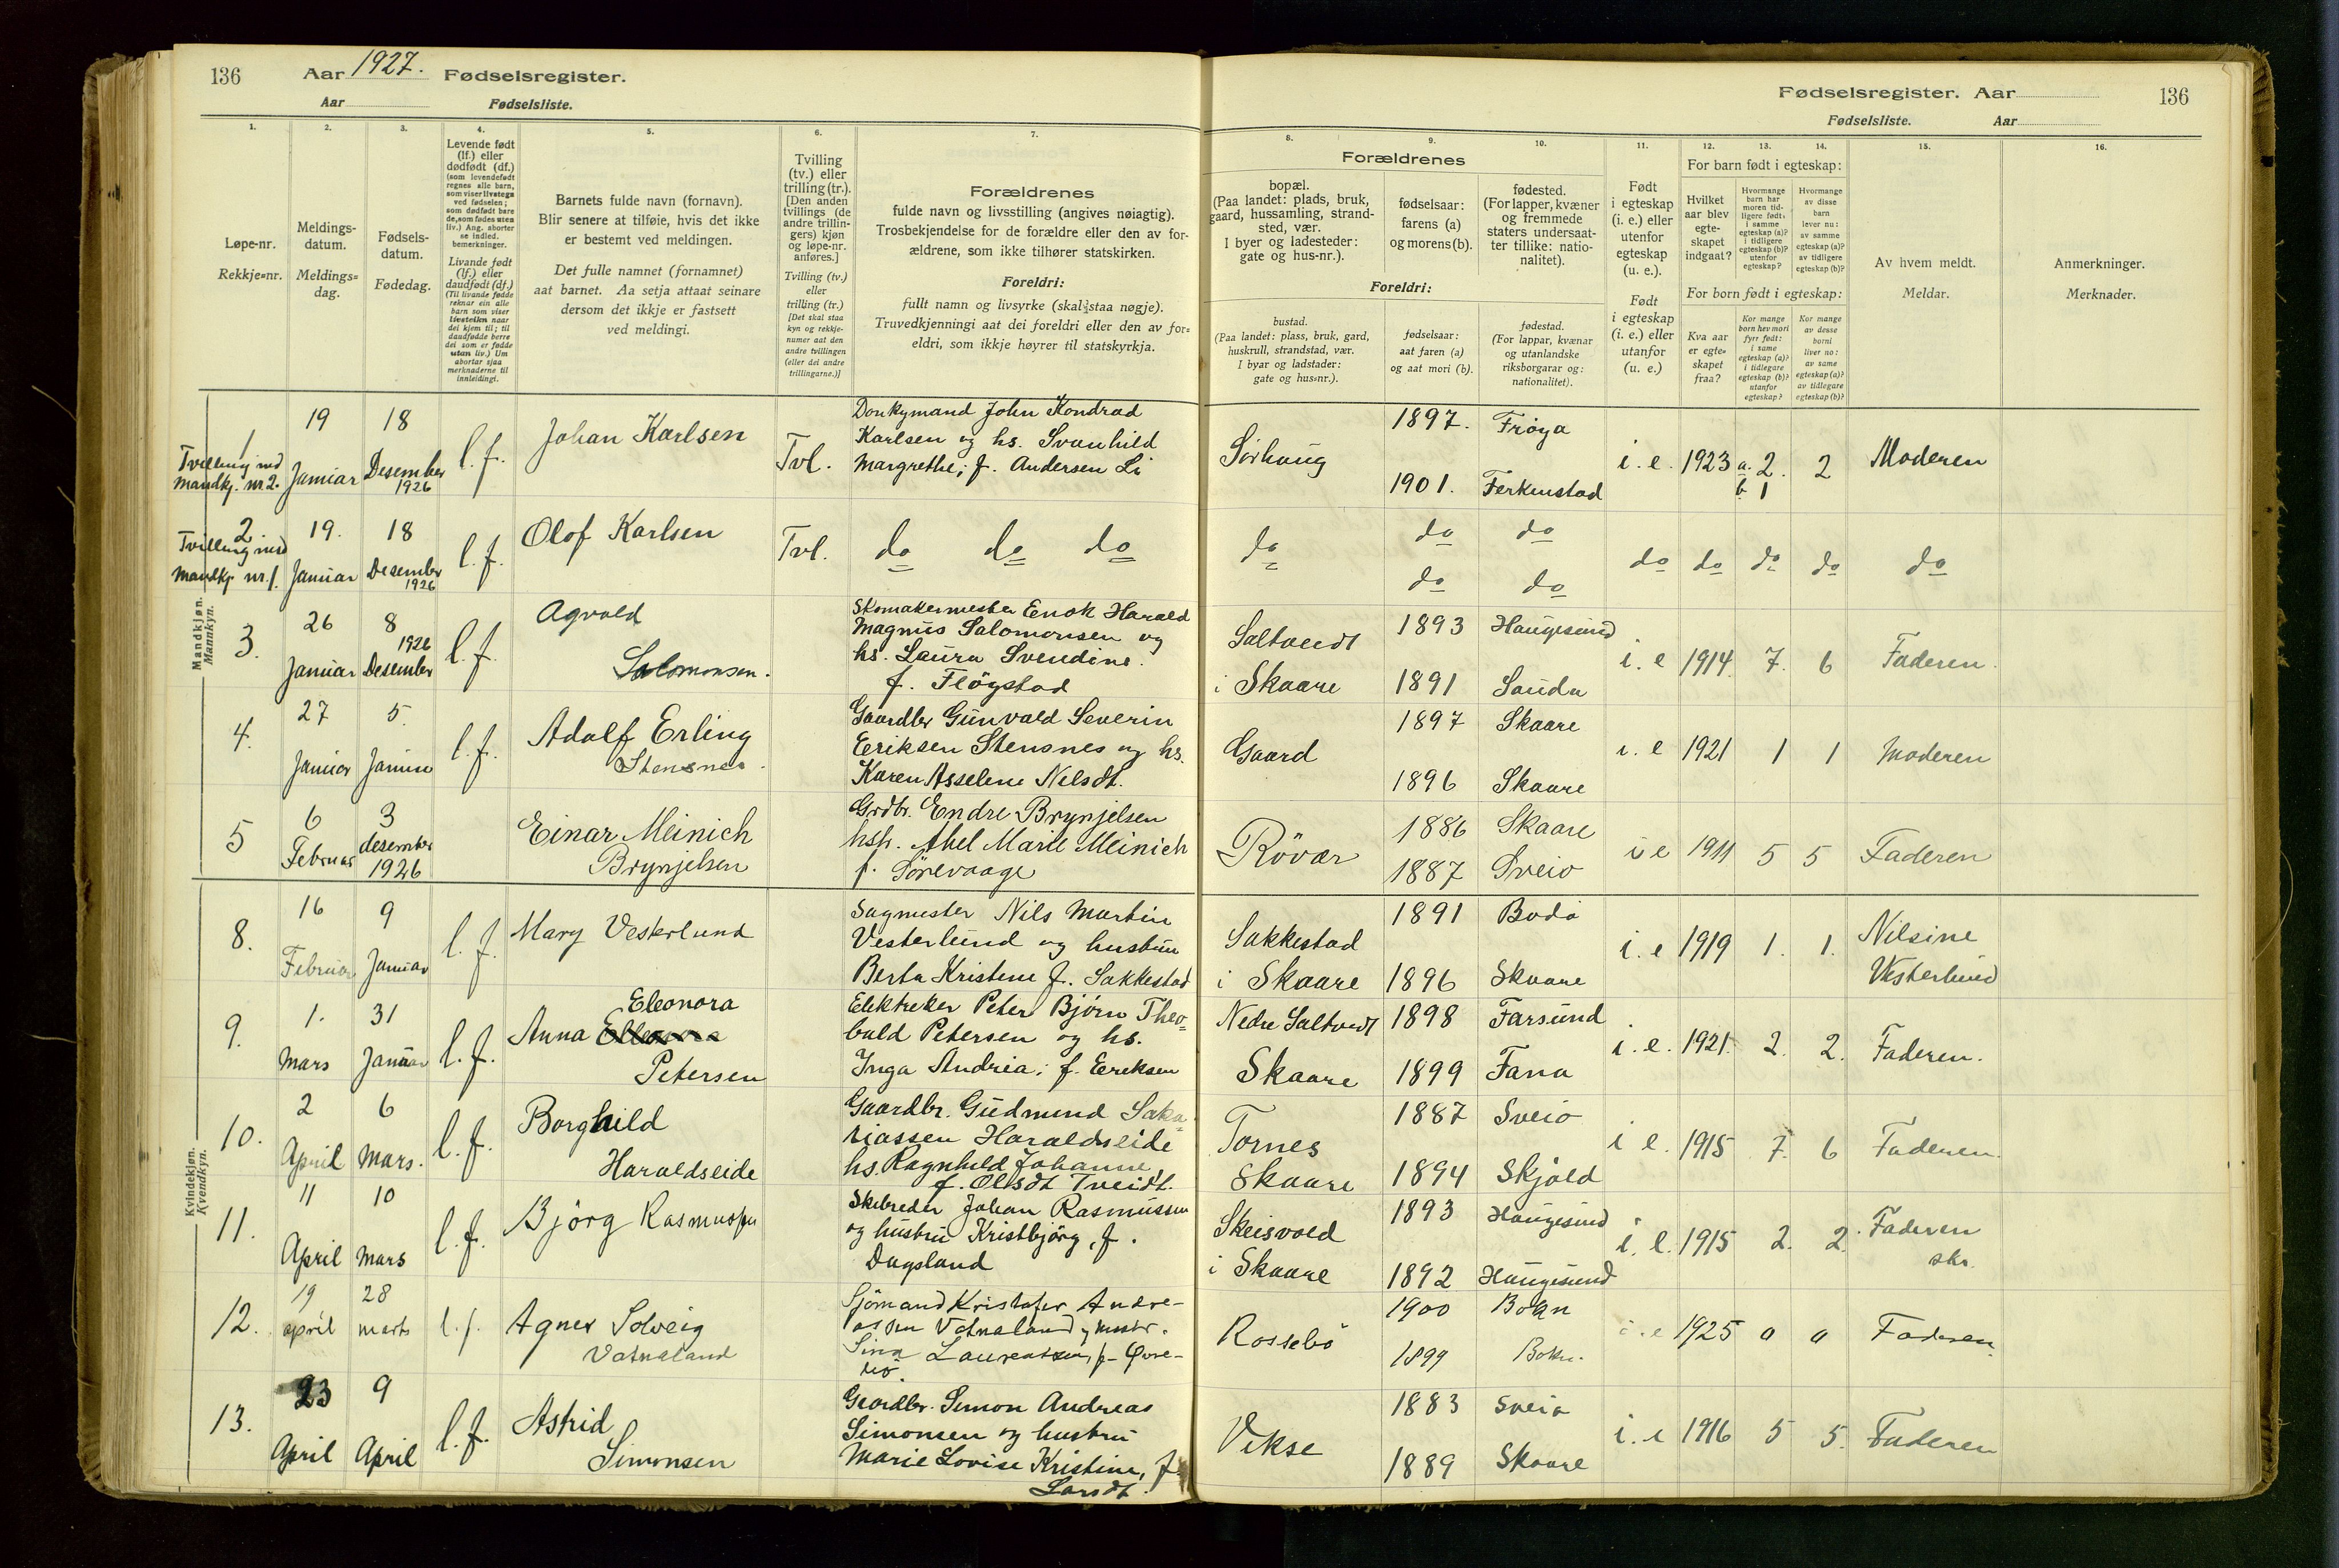 136 Aar 1927. Fødselsregister.
Aar Fødselsliste.
Fødselsregister. Aar 136
Fødselsliste. Aar
1. 2. 3. 4. 5. 6. 7.
Løpe-nr.
Rekkje-nr.
Meldings-
datum.
Meldings-
dag.
Fødsels-
datum.
Fødedag.
Levende født
(lf.) eller
dødfødt (df.)
(som levendefødt
regnes alle barn,
som viser livstegn
ved fødselen;
som dødfødt bare
de, som fødes uten
liv.) Ang. aborter
se indled.
bemerkninger.
Livande født
(lf.) eller
daudfødt (df.)
(Til livande fødde
reknar ein alle
barn som viser
livsteikn naar
dei kjem til; til
daudfødde berre
dei som er fødde
utan liv.) Um
abortar sjaa
merknaderne til
innleidingi.
Barnets fulde navn (fornavn).
Blir senere at tilføie, hvis det ikke
er bestemt ved meldingen.
Det fulle namnet (fornamnet)
aat barnet. Aa setja attaat seinare
dersom det ikkje er fastsett
ved meldingi.
Tvilling
(tv.) eller
trilling (tr.).
[Den anden
tvillings (de
andre trillin-
gers) kjøn
og løpe-nr.
anføres.]
Tvilling (tv.)
eller
trilling (tr.)
[Det skal staa
kyn og rekkje-
numer aat den
andre tvillingen
(eller dei andre
trillingarne.)]
Forældrenes
fulde navn og livsstilling (angives nøiagtig).
Trosbekjendelse for de forældre eller den av for-
ældrene, som ikke tilhører statskirken.
Foreldri:
fullt namn og livsyrke (skal staa nøgje).
Truvedkjenningi aat dei foreldri eller den av for-
eldri, som ikkje høyrer til statskyrkja.
8. 9. 10. 11. 12. 13. 14. 15. 16.
Forældrenes
bopæl.
(Paa landet: plads, bruk,
gaard, hussamling, strand-
sted, vær.
I byer og ladesteder:
gate og hus-nr.).
fødselsaar:
farens (a)
og morens (b).
fødested.
(For lapper, kvæner
og fremmede
staters undersaat-
ter tillike: natio-
nalitet).
Foreldri:
bustad.
(Paa landet: plass, bruk, gard,
huskrull, strandstad, vær.
I byar og ladstader:
gate og hus-nr.).
fødselsaar:
aat faren (a)
og aat mori (b).
fødestad.
(For lappar, kvænar
og utanlandske
riksborgarar og:
nationalitet).
Født
i egteskap
(i. e.) eller
utenfor
egteskap
(u. e.).
Født
i egteskap
(i. e.) eller
utanfor
(u. e.)
For barn født i egteskap:
Hvilket
aar blev
egte-
skapet
indgaat?
Hvormange
barn har
moren tid-
ligere født:
i samme
egteskap (a)?
i tidligere
egteskap (b)?
utenfor
egteskap?
Hvormange
av disse
barn
lever nu:
av samme
egteskap (a)?
av tidligere
egteskap (b)?
For born født i egteskap:
Kva aar
er egte-
skapet
fraa?
Kor mange
born hev mori
fyrr født:
i same
egteskap (a)?
i tidlegare
egteskap (b)?
utanfor
egteskap?
Kor mange
av desse
borni
liver no:
av same
egteskap (a)?
av tidlegare
egteskap (b)?
Av hvem meldt.
Meldar.
Anmerkninger.
Merknader.
Mandkjøn.
Mannkyn.
1
Tvilling med
mandkj. nr 2.
19 Januar
18 Desember 1926
l. f.
Johan Karlsen
Tvl.
Donkymand John Kondrad
Karlsen og hs. Svanhild
Margrethe; f. Andersen Li
Sørhaug
1897. Frøya
1901. Ferkinstad
i. e. 1923 a. 2. b. 1 2 Moderen
2
Tvilling med
Mandkj. nr. 1.
19. Januar
18 Desember 1926
l. f.
Olof Karlsen
Tvl. do do do
do do do
do do
do do do do do
3. 26 Januar
8 1926 Desember
l. f.
Agvald
Salomonsen.
Skomakermester Enok Harald
Magnus Salomonsen og
hs. Laura Svendine.
f. Fløgstad
Saltvedt
i Skaare
1893 Haugesund
1891 Sauda
i. e 1914 7. 6 Faderen.
4. 27 Januar
5. Januar
l. f.
Adolf Erling
Stensnes.
Gaardbr Gunvald Severin
Eeriksen Stensnes og hs.
Karen Asseline Nelsdt.
Gaard
1897 Skaare
1896 Skaare
i. e 1921 1 1 Moderen
5 6 Februar
3 desember 1926
Einar Meinich
Brynjelsen
Grdbr. Endre Brynjelsen
hsh. Abel Marie Meinich
f. Sørevaage
Røvær
1886 Skaare
1887 Sveio
i e 1911 5 5 Faderen
Kvindekjøn.
Kvendkyn.
8. 16 Februar
9 Januar
l. f.
Mary Vesterlund
Sagmester Nils Martin
Vesterlund og hustru
Berta Kristine f. Sakkestad
Sakkestad
i Skaare
1891 Bodø
1896 Skaare
i. e 1919 1. 1. Nilsine
Vesterlund
9. 1. Mars
31 Januar
l. f.
Eleonora
Anna
Petersen
Elektriker Peter Bjørn Theo-
bald Petersen og hs.
Inga Andrea; f. Eeriksen
Nedre Saltvedt
Skaare
1898 Farsund
1899 Fana
i. e. 1921. 2. 2. Faderen.
10. 2 April
6 Mars.
l. f.
Borghild
Haraldseide
Gaardbr. Gudmund Saka-
riassen Haraldseide
hs. Ragnhild Johanne,
f. Olsdt Tveidt.
Tornes
Skaare
1887 Sveio
1894 Skjold
i e. 1915 7. 6 Faderen.
11. 11 April
10 Mars
l. f.
Bjørg Rasmussen
Skibreder Johan Rasmussen
og hustru Kristbjørg, f.
Dagsland
Skeisvold
i Skaare
1893 Haugesund
1892 Haugesund
i. e. 1915 2. 2. Faderen
skr.
12. 19 april
28 marts
l. f.
Agner Solveig
Vatnaland
Sjømand Kristofer Andre-
assen Vatnaland og hustr.
Sina Laurentsen, f. Øvre-
bø.
Rossebø
1900 Bokn
1899 Bokn.
i. e 1925 0 0 Faderen.
13. 23 April
9 April
l. f.
Astrid
Simonsen
Gaardbr. Simon Andreas
Simonsen og hustru
Marie Lovise Kristine, f.
Larsdt.
Vikse
1883 Sveio
1889 Skaare
i. e 1916 5 5. Faderen